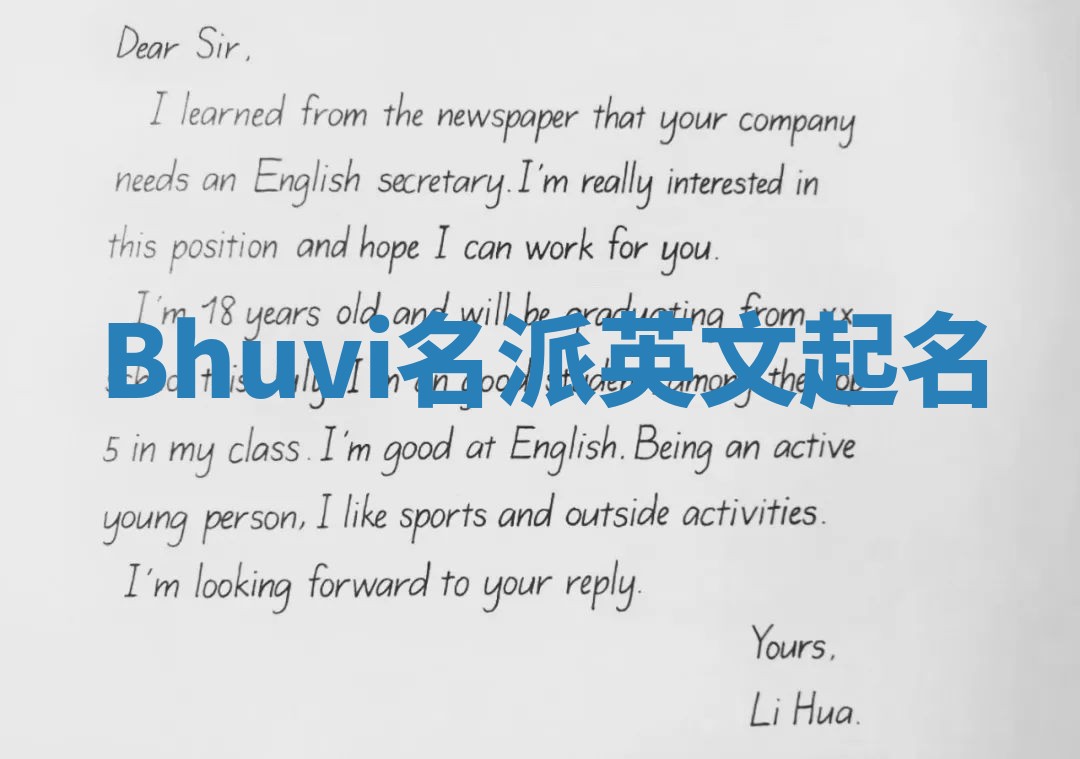 Dear Sir,
I learned from the newspaper that your company
needs an English secretary. I'm really interested in
this position and hope I can work for you.
I'm 18 years old and will be graduating from xx
Bhuvi名派英文起名
school this July. I'm an good student, among the top
5 in my class. I'm good at English. Being an active
young person, I like sports and outside activities.
I'm looking forward to your reply.
Yours,
Li Hua.